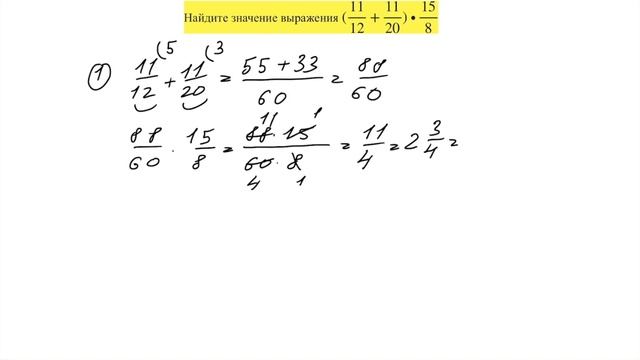 Найдите значение выражения (11/12 + 11/20) • 15/8
① 11/12 (5 + 11/20 (3 = 55 + 33/60 = 88/60
88/60 · 15/8 = 88 11 · 15 1/60 4 · 8 1 = 11/4 = 2 3/4 =